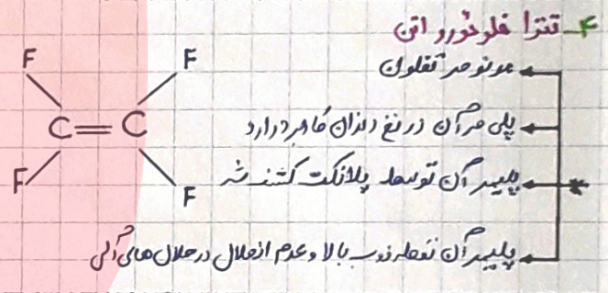 ۴_ تترا فلوئورو اتن
مونومر تفلون
پلی مر آن در نخ دندان کاربرد دارد
پلیمر آن توسط پلانکت کشف شد
پلیمر آن نقطه ذوب بالا و عدم انحلال در حلال های آلی
F
F
C=C
F
F